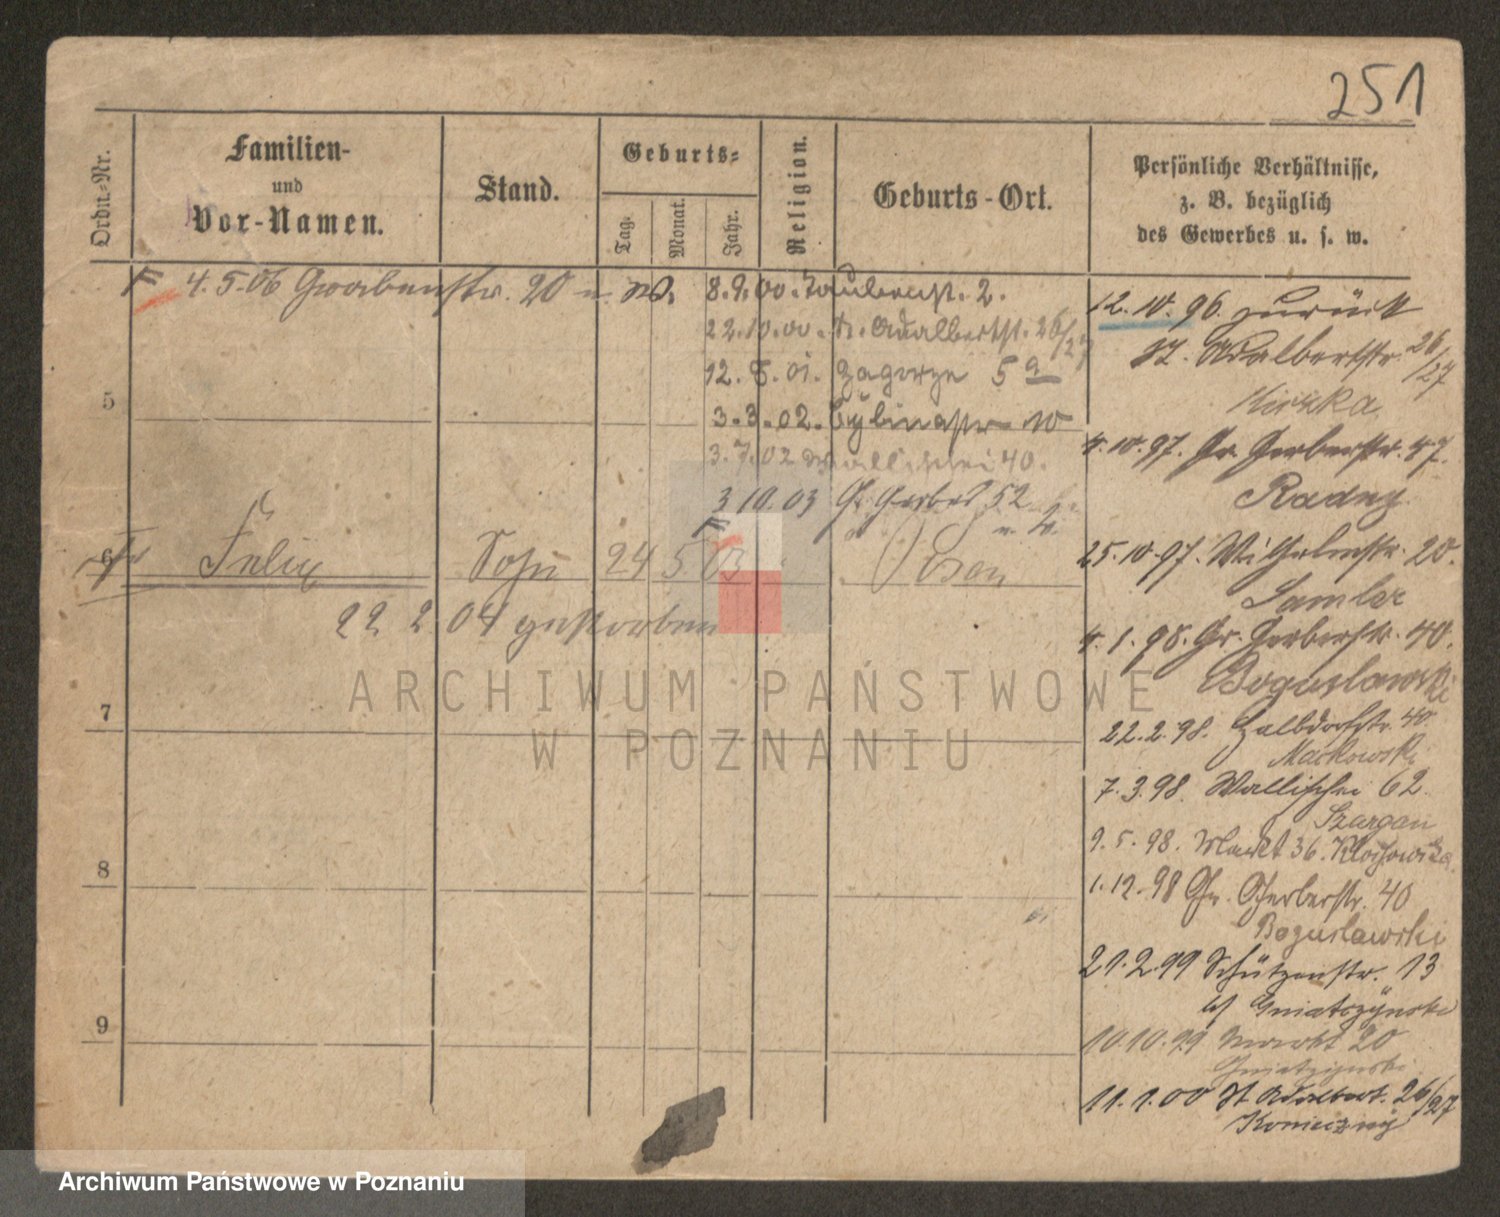 251
Ordn.-Nr.
Familien-
und
Vor-Namen.
Stand.
Geburts-
Tag.
Monat.
Jahr.
Religion.
Geburts-Ort.
Persönliche Verhältnisse,
z. B. bezüglich
des Gewerbes u. s. w.
4.5.06 Grabenstr. 20
8.9.00. Taubenst. 2.
22.10.00. St. Adalbertst. 26/27
12. 8. 01. Zagorze 5a
3.3.02. Cybinastr 10
3.7.02 Wallischei 40.
3 10.03 Gr Gerber 52
5
6 Felix Sohn 24 5. 03 Posen
22 2 04 gestorben
7
8
9
12.10.96. zurück
St. Adalbertstr. 26/27
4.10.97. Gr. Gerberstr. 47.
25.10.97. Wilhelmstr. 20.
4.1.98. Gr. Gerberstr. 40.
Boguslawski
22.2.98. Halbdorfstr. 40.
Mackowski
7.3.98. Wallischei 62.
9.5.98. Markt 36.
1.12.98 Gr. Gerberstr. 40
Boguslawski
21.2.99 Schützenstr. 13
b/ Gniatczynski
10.10.99 Markt 20
11.1.00 St Adalbert. 26/27
Konieczny
ARCHIWUM PAŃSTWOWE
W POZNANIU
Archiwum Państwowe w Poznaniu